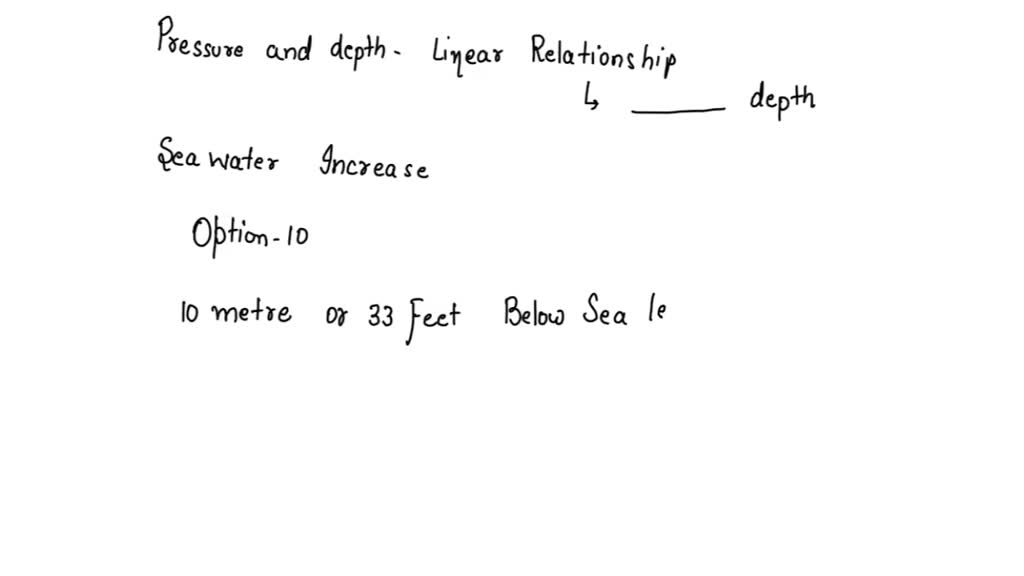 Pressure and depth - Linear Relationship
↳ ______ depth
Sea water Increase
Option - 10
10 metre or 33 Feet Below Sea le